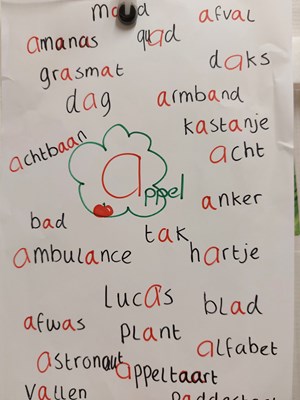 maud
afval
amanas
quad
grasmat
daks
dag
armband
kastanje
achtbaan
acht
appel
anker
bad
tak
ambulance
hartje
Lucas
blad
afwas
plant
astronaut
alfabet
appeltaart
vallen